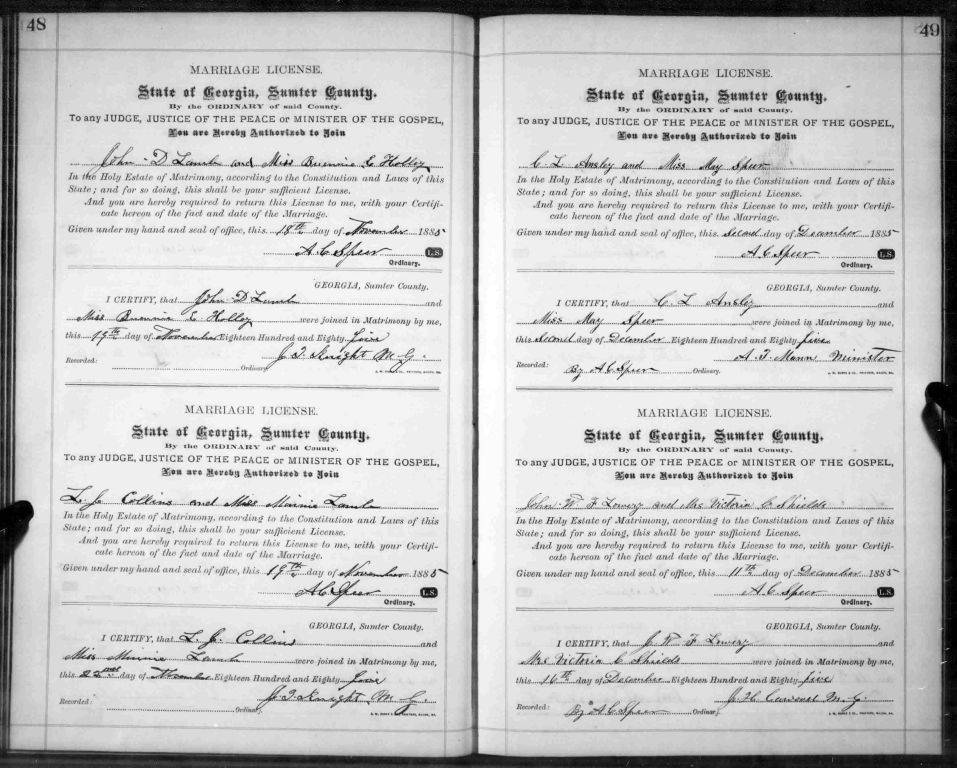 48
MARRIAGE LICENSE.
State of Georgia, Sumter County.
By the ORDINARY of said County.
To any JUDGE, JUSTICE OF THE PEACE or MINISTER OF THE GOSPEL,
You are Hereby Authorized to Join
John D Lamb and Miss Bunnie E Holloy
In the Holy Estate of Matrimony, according to the Constitution and Laws of this
State; and for so doing, this shall be your sufficient License.
And you are hereby required to return this License to me, with your Certifi-
cate hereon of the fact and date of the Marriage.
Given under my hand and seal of office, this 18th day of November 1885
A C Speer L.S.
Ordinary.
GEORGIA, Sumter County.
I CERTIFY, that John D Lamb and
Miss Bunnie E Holloy were joined in Matrimony by me,
this 19th day of November Eighteen Hundred and Eighty five
J T Knight M G.
Recorded: Ordinary.
MARRIAGE LICENSE.
State of Georgia, Sumter County.
By the ORDINARY of said County.
To any JUDGE, JUSTICE OF THE PEACE or MINISTER OF THE GOSPEL,
You are Hereby Authorized to Join
L. J. Collins and Miss Minnie Lamb
In the Holy Estate of Matrimony, according to the Constitution and Laws of this
State; and for so doing, this shall be your sufficient License.
And you are hereby required to return this License to me, with your Certifi-
cate hereon of the fact and date of the Marriage.
Given under my hand and seal of office, this 19th day of November 1885
A C Speer L.S.
Ordinary.
GEORGIA, Sumter County.
I CERTIFY, that L. J. Collins and
Miss Minnie Lamb were joined in Matrimony by me,
this 22nd day of November Eighteen Hundred and Eighty five
J T Knight M G.
Recorded: Ordinary.
49
MARRIAGE LICENSE.
State of Georgia, Sumter County.
By the ORDINARY of said County.
To any JUDGE, JUSTICE OF THE PEACE or MINISTER OF THE GOSPEL,
You are Hereby Authorized to Join
C L Ansley and Miss May Speer
In the Holy Estate of Matrimony, according to the Constitution and Laws of this
State; and for so doing, this shall be your sufficient License.
And you are hereby required to return this License to me, with your Certifi-
cate hereon of the fact and date of the Marriage.
Given under my hand and seal of office, this Second day of December 1885
A C Speer L.S.
Ordinary.
GEORGIA, Sumter County.
I CERTIFY, that C L Ansley and
Miss May Speer were joined in Matrimony by me,
this Second day of December Eighteen Hundred and Eighty five
A. J. Mann Minister
Recorded: By A C Speer Ordinary.
MARRIAGE LICENSE.
State of Georgia, Sumter County.
By the ORDINARY of said County.
To any JUDGE, JUSTICE OF THE PEACE or MINISTER OF THE GOSPEL,
You are Hereby Authorized to Join
John W F Lowery and Mrs Victoria C Shields
In the Holy Estate of Matrimony, according to the Constitution and Laws of this
State; and for so doing, this shall be your sufficient License.
And you are hereby required to return this License to me, with your Certifi-
cate hereon of the fact and date of the Marriage.
Given under my hand and seal of office, this 11th day of December 1885
A C Speer L.S.
Ordinary.
GEORGIA, Sumter County.
I CERTIFY, that J W F Lowery and
Mrs Victoria C Shields were joined in Matrimony by me,
this 16th day of December Eighteen Hundred and Eighty five
J. H. M. G.
Recorded: By A C Speer Ordinary.